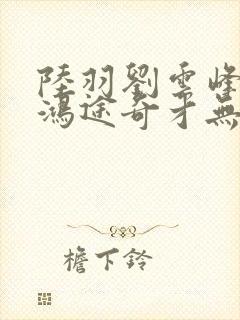 陸羽劉雲峰
鴻途奇才無
檐下鈴